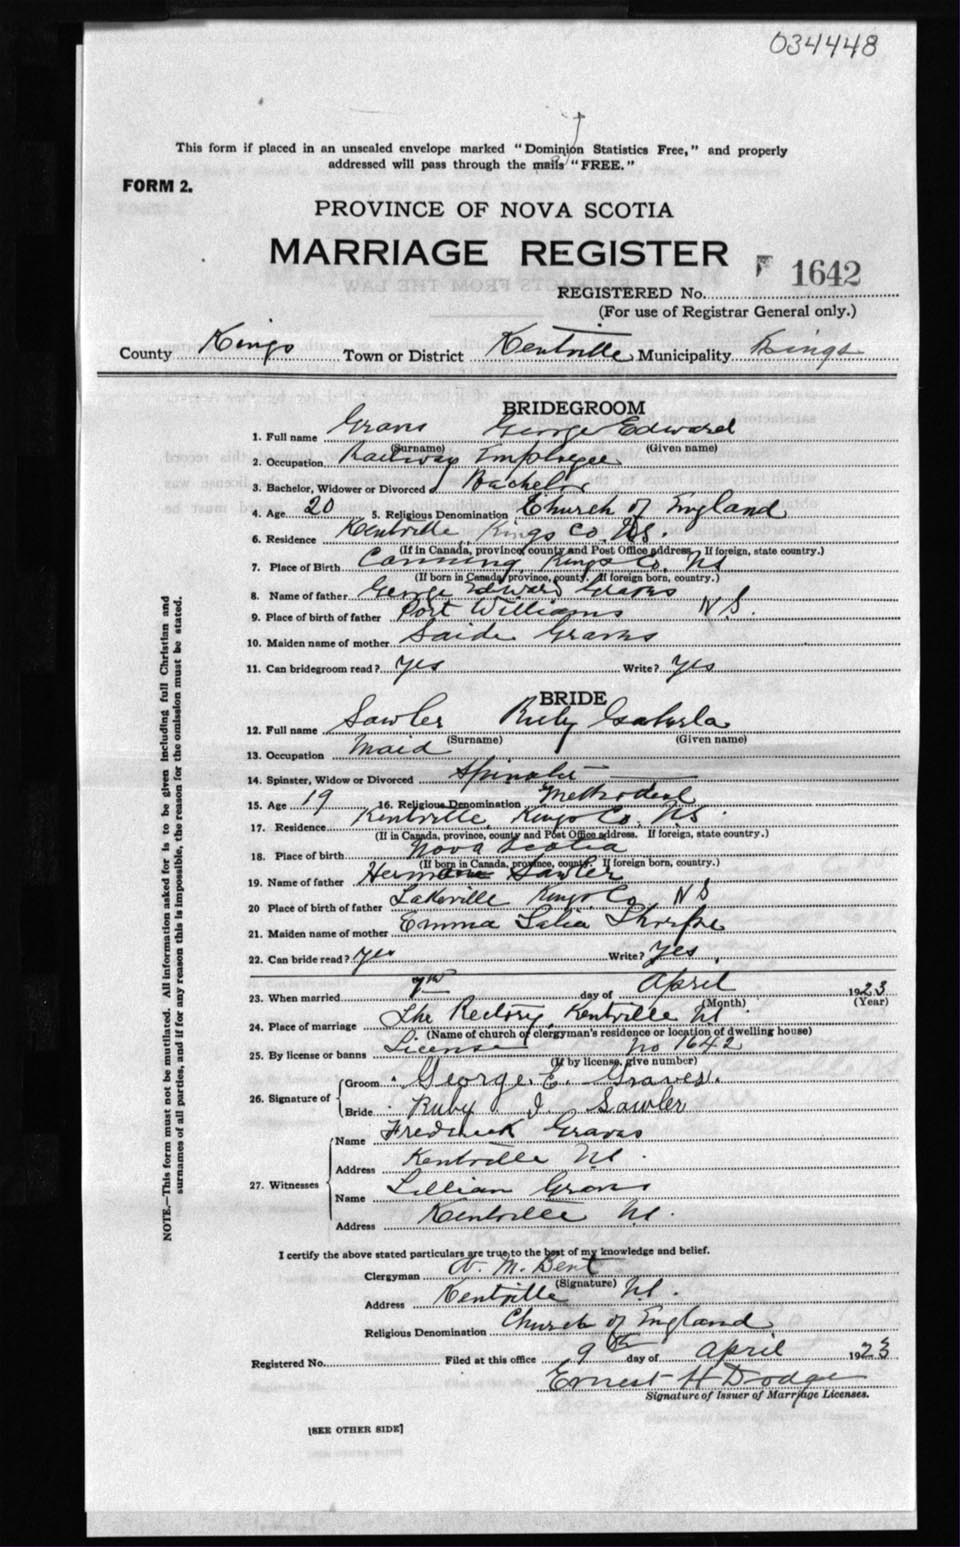 034448
This form if placed in an unsealed envelope marked "Dominion Statistics Free," and properly
addressed will pass through the mails "FREE."
FORM 2.
PROVINCE OF NOVA SCOTIA
MARRIAGE REGISTER
REGISTERED No. 1642
(For use of Registrar General only.)
County Kings Town or District Kentville Municipality Kings
BRIDEGROOM
1. Full name Graves George Edward
(Surname) (Given name)
2. Occupation Railway Employee
3. Bachelor, Widower or Divorced Bachelor
4. Age 20 5. Religious Denomination Church of England
6. Residence Kentville, Kings Co. N.S.
(If in Canada, province, county and Post Office address. If foreign, state country.)
7. Place of Birth Canning, Kings Co. NS
(If born in Canada, province, county. If foreign born, country.)
8. Name of father George Edward Graves
9. Place of birth of father Port Williams N.S.
10. Maiden name of mother Graves
11. Can bridegroom read? Yes Write? Yes
BRIDE
12. Full name Sawler Ruby Isabella
(Surname) (Given name)
13. Occupation Maid
14. Spinster, Widow or Divorced Spinster
15. Age 19 16. Religious Denomination Methodist
17. Residence Kentville, Kings Co. NS
(If in Canada, province, county and Post Office address. If foreign, state country.)
18. Place of birth Nova Scotia
(If born in Canada, province, county. If foreign born, country.)
19. Name of father Herman Sawler
20 Place of birth of father Lakeville Kings Co. NS
21. Maiden name of mother Emma
22. Can bride read? Yes Write? Yes
23. When married 7th day of April 1923
(Month) (Year)
24. Place of marriage The Rectory, Kentville NS
(Name of church or clergyman's residence or location of dwelling house)
25. By license or banns License no 1642
(If by license, give number)
26. Signature of
Groom George. E. Graves.
Bride Ruby I. Sawler
27. Witnesses
Name Frederick Graves
Address Kentville NS.
Name Lillian Graves
Address Kentville NS.
I certify the above stated particulars are true to the best of my knowledge and belief.
Clergyman A. M. Bent
(Signature)
Address Kentville NS.
Religious Denomination Church of England
Registered No. Filed at this office 9th day of April 1923
Ernest H Dodge
Signature of Issuer of Marriage Licenses.
[SEE OTHER SIDE]
NOTE.—This form must not be mutilated. All information asked for is to be given including full Christian and
surnames of all parties, and if for any reason this is impossible, the reason for the omission must be stated.